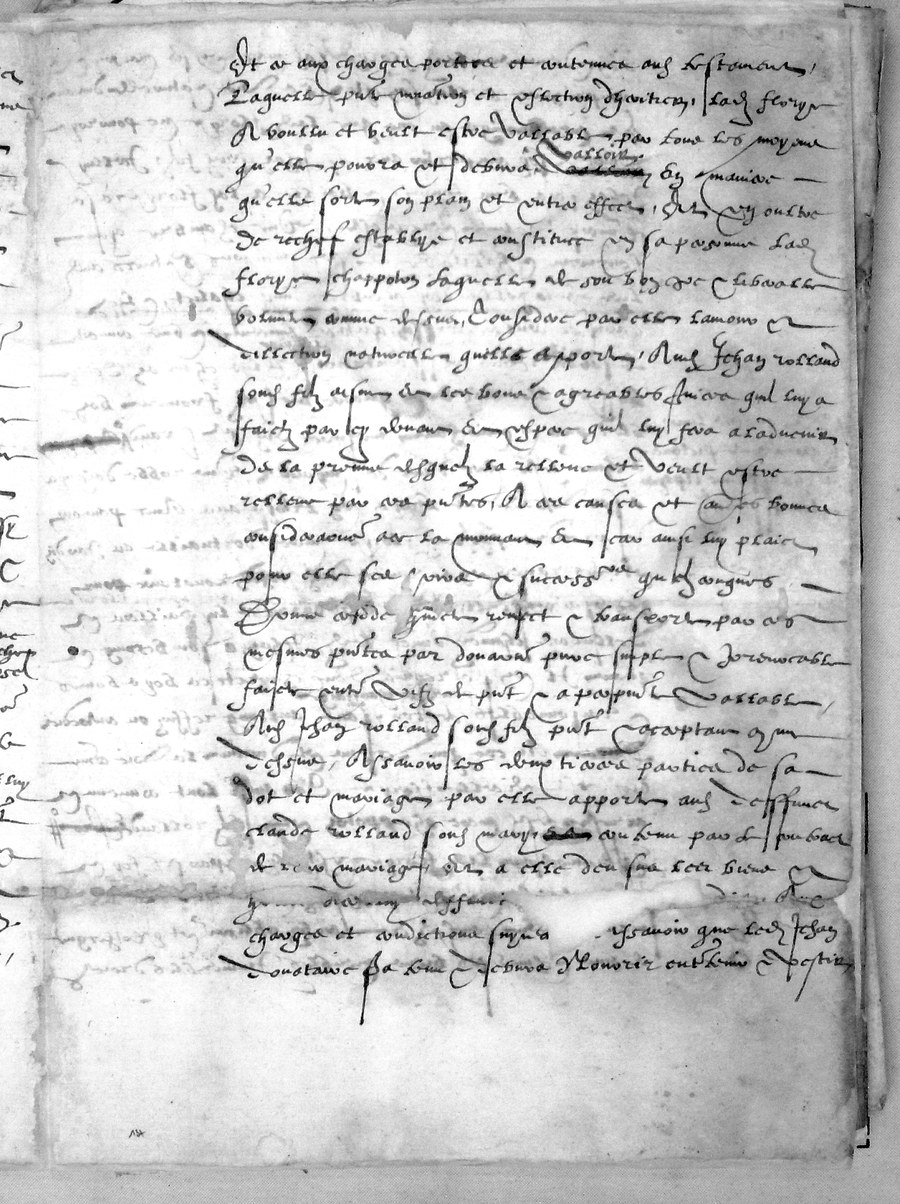 Et ce aux charges portees et contenues aud testament,
Laquelle pnte donation et eslection dheritier, lad florye
A voullu et veult estre vallable par tous les moyens
qu'elle pourra et debvra valloir en maniere
qu'elle sorte son plain et entier effect, Et en oultre
de rechef establye et constituee en sa personne lad
florye chappoton laquelle de son bon gre & liberalle
volunte comme dessus, Considere par elle lamour &
dillection naturelle quelle apporte, Aud Jehan rolland
sond filz aisne Et les bons & agreables services quil luy a
faictz par cy devant Et espere quil luy fera a ladvenir
de la preuve desquelz la relleve et veult estre
rellevee par ces pntes, A ces causes et aultres bonnes
considerations ace la mouvant Et car ainsi luy plaict
pour elle ses hoirs & successeurs quelzconques
Donne cedde quicte remect & transporte par ces
mesmes pntes par donation pure simple & irrevocable
faicte entre vifz de pnt & a perpetuite vallable,
Aud Jehan rolland sond filz pnt & acceptant comme
dessus, Assavoir les deux tierces parties de sa
dot et mariage par elle apporte aud deffunct
claude rolland sond mary contenu par le contract
de leur mariage, Et a elle deu sur les biens &
deffunct Aux
charges et conditions suyvantes assavoir que led Jehan
donataire sera tenu & debvra Nourrir entretenir & vestir